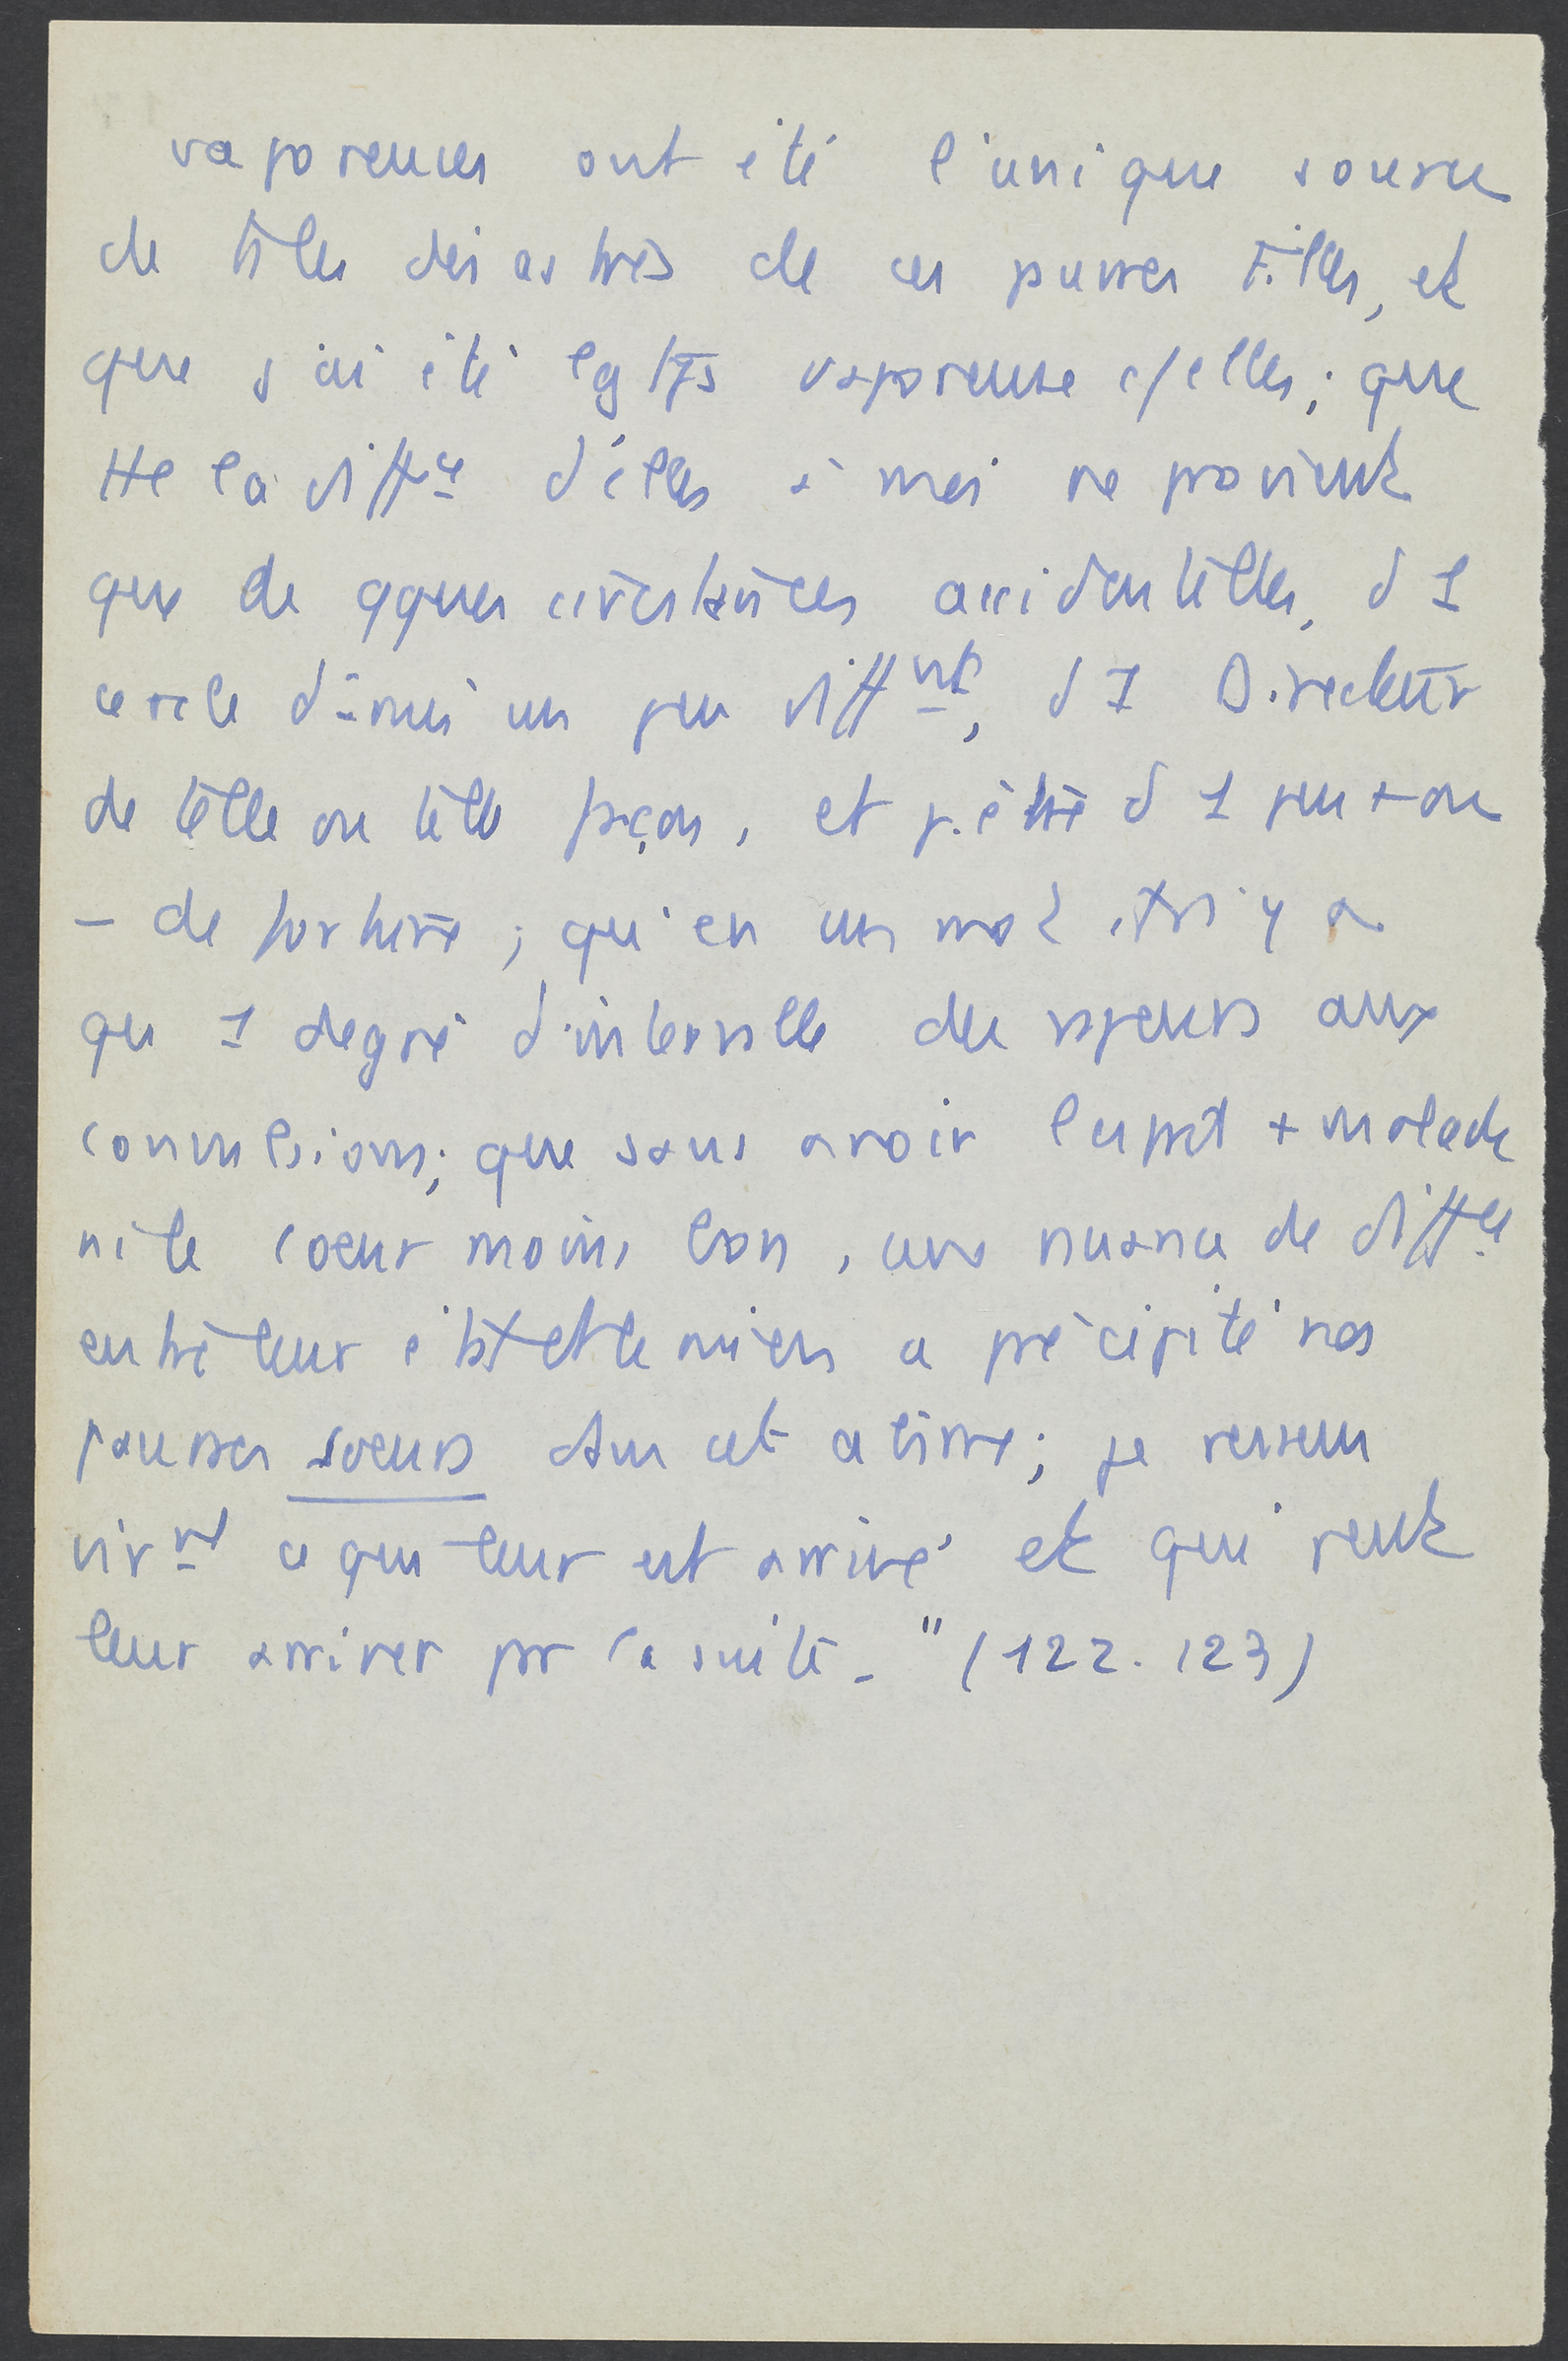 vaporeuses ont été l'unique source
de tels désastres de ces pauvres Filles, et
que j'ai été lgtps vaporeuse c/ elles ; que
tte la diffce d'elles à moi ne provient
que de qques circstances accidentelles, d 1
cercle d'amis un peu diffnt, d 1 Directeur
de telle ou telle façon, et p.être d 1 peu + ou
– de fortune ; qu'en un mot il n'y a
qu 1 degré d'intervalle des vapeurs aux
convulsions ; que sans avoir l'esprit + malade
ni le coeur moins bon, une nuance de diffce
entre leur état et le mien a précipité nos
pauvres soeurs dans cet abîme ; je ressens
virnt ce qui leur est arrivé et qui peut
leur arriver par la suite. " (122.123)